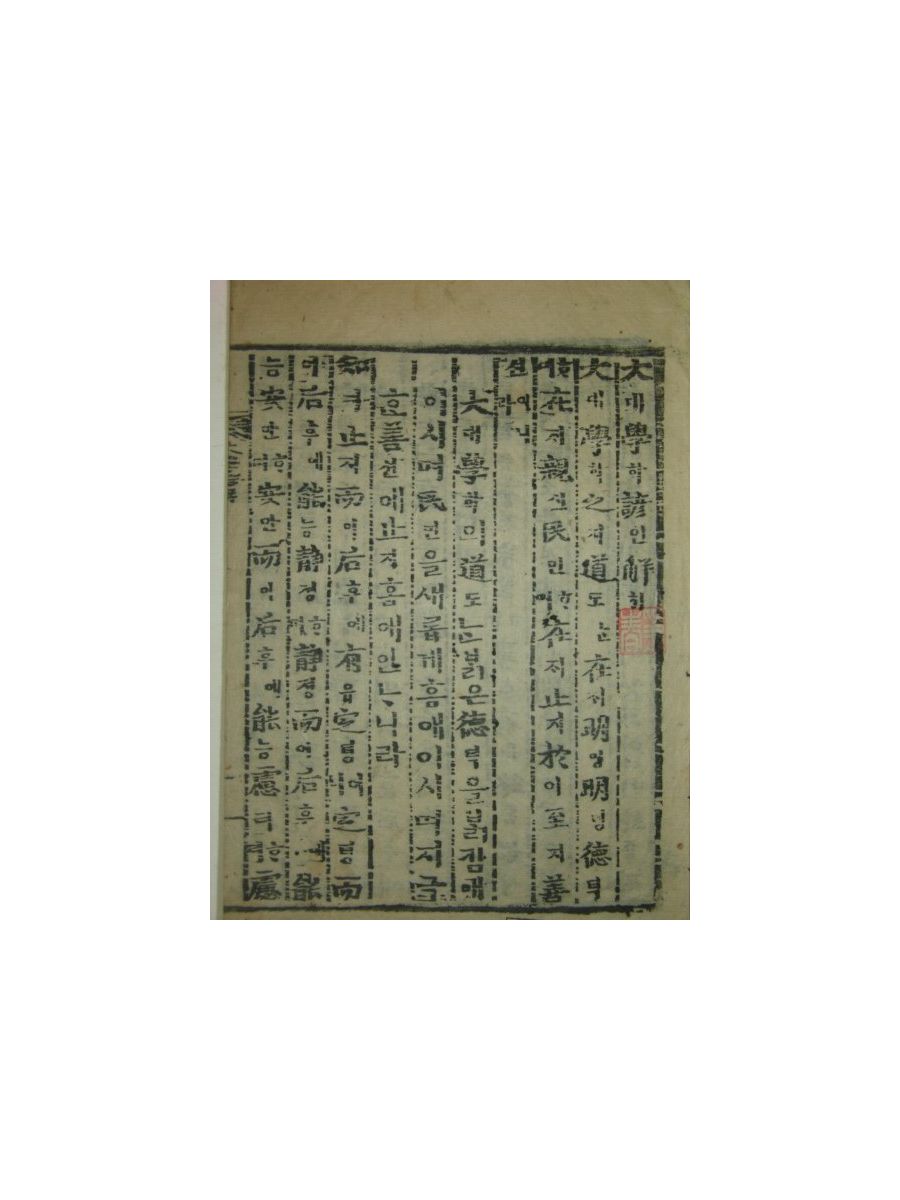 大대學학諺언解ᄒᆡ
大대學학之지道도ᄂᆞᆫ在ᄌᆡ明명明명德덕
ᄒᆞ며在ᄌᆡ親신民민ᄒᆞ며在ᄌᆡ止지於어至지善
션이니라
大대學학의道도ᄂᆞᆫ붉은德덕을ᄇᆞᆰ킴애
이시며民민을새롭게홈애이시며지극
ᄒᆞᆫ善션에止지홈애인ᄂᆞ니라
知지止지而이后후에有유定뎡이니定뎡而
이后후에能능靜졍ᄒᆞ며靜졍而이后후에能
능安안ᄒᆞ며安안而이后후에能능慮려ᄒᆞ며慮